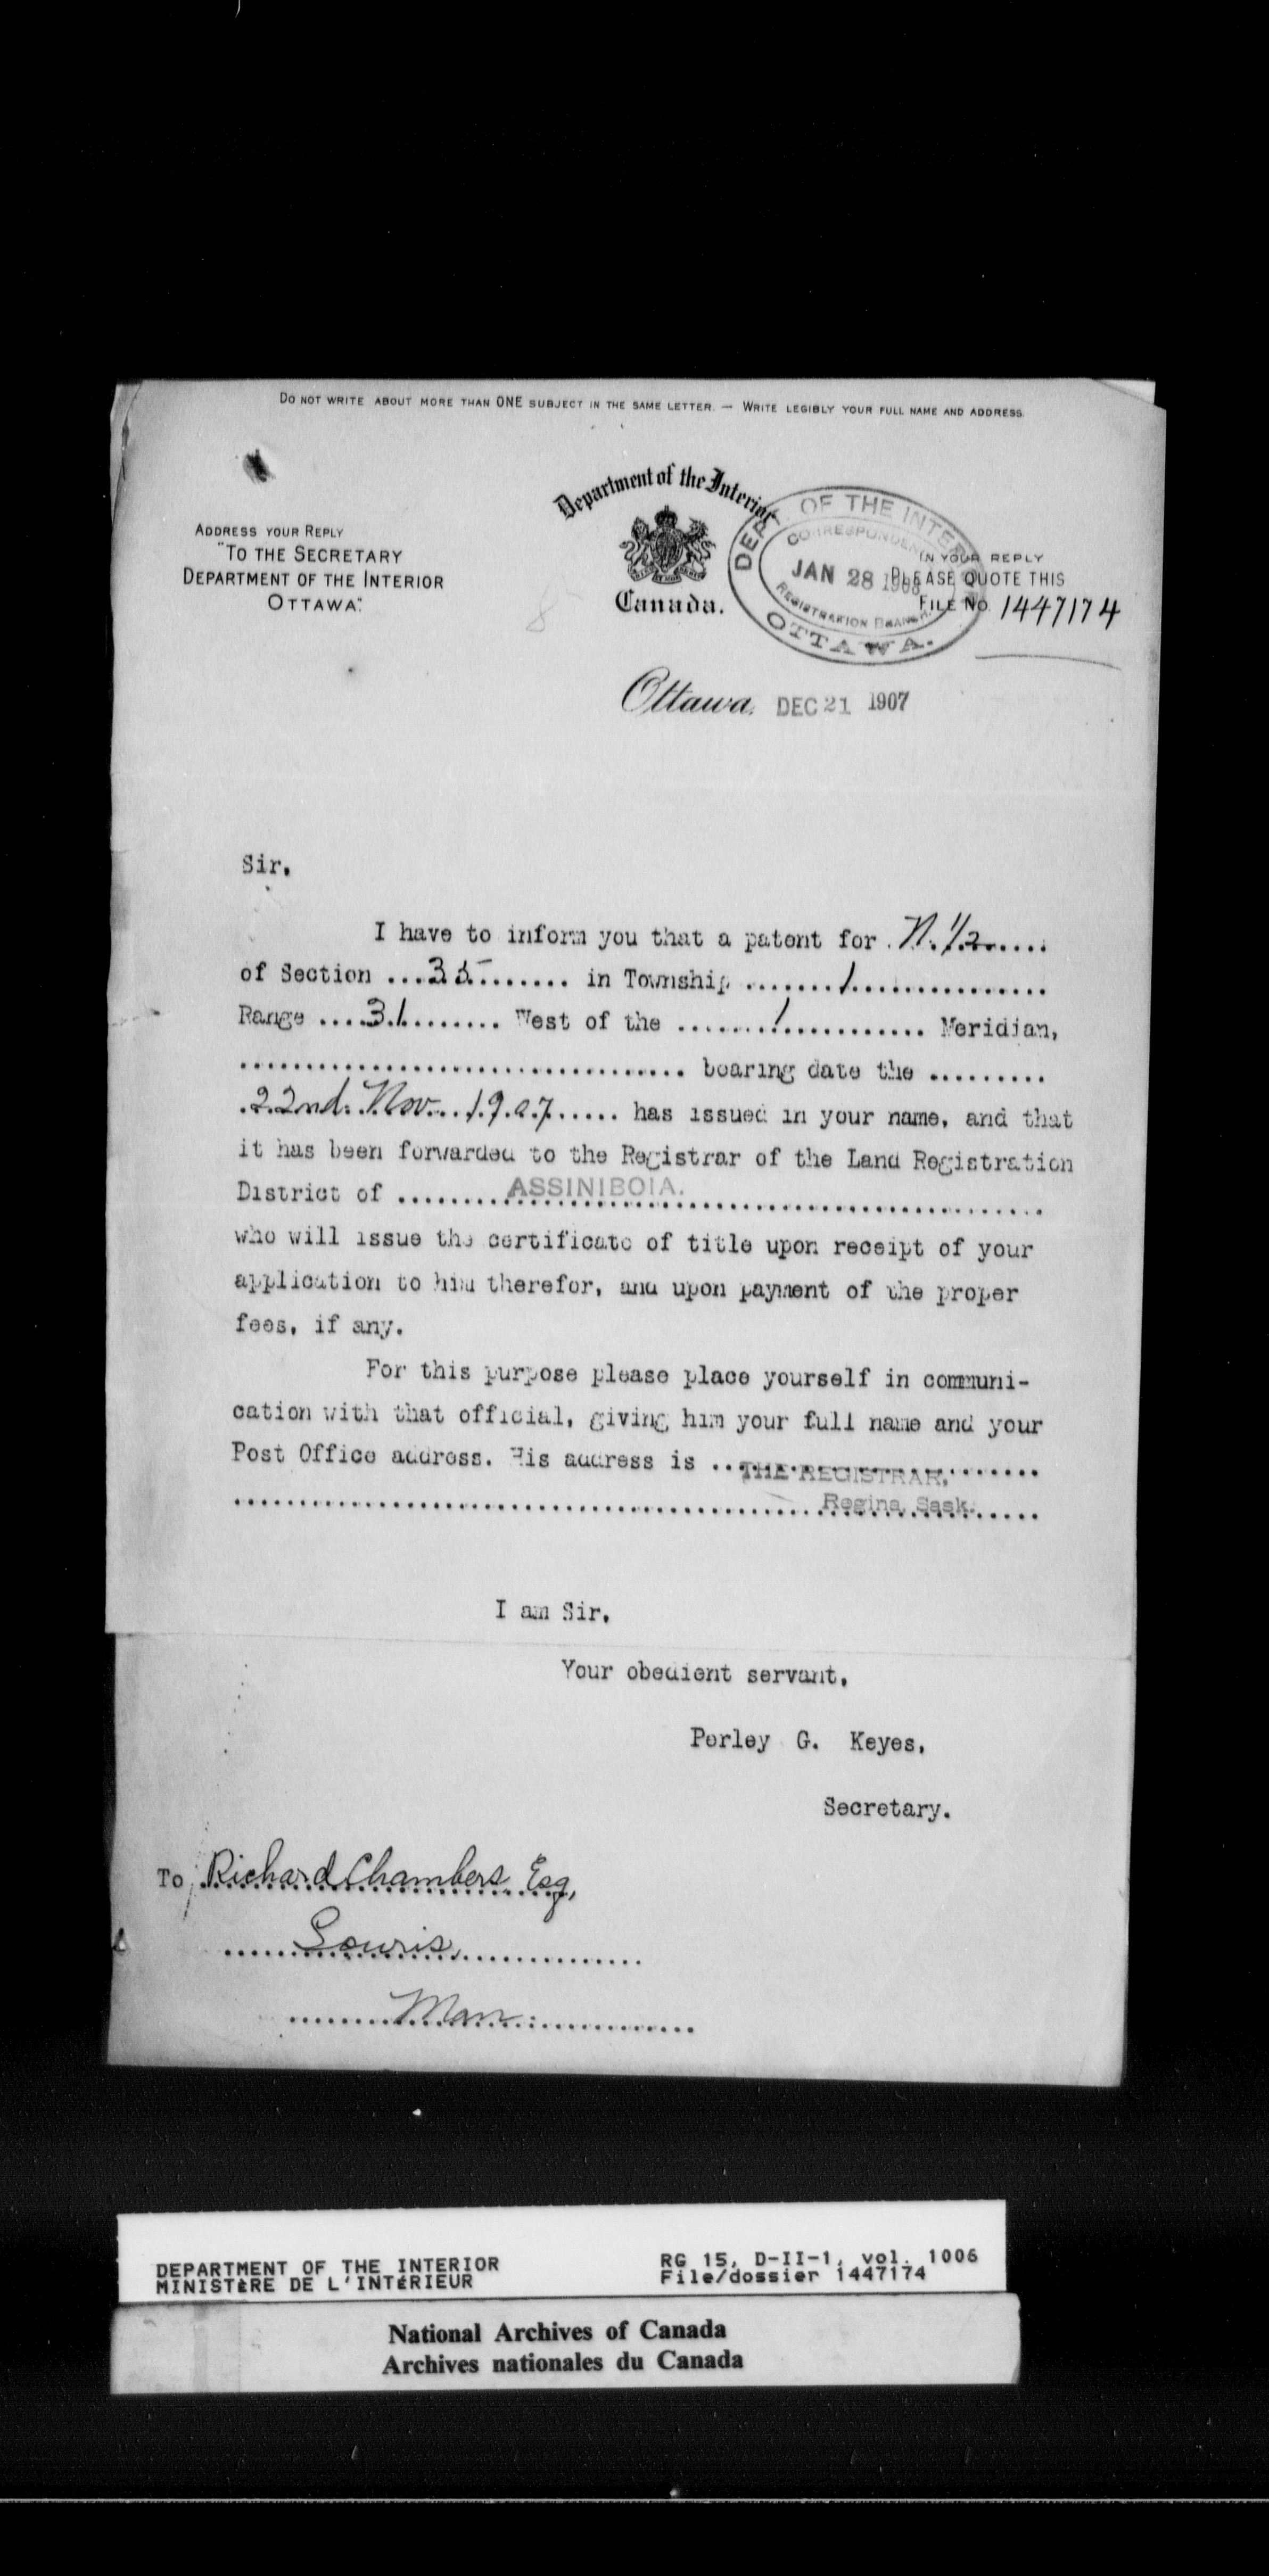 DO NOT WRITE ABOUT MORE THAN ONE SUBJECT IN THE SAME LETTER. — WRITE LEGIBLY YOUR FULL NAME AND ADDRESS.
Department of the Interior
Canada.
ADDRESS YOUR REPLY
"TO THE SECRETARY
DEPARTMENT OF THE INTERIOR
OTTAWA."
DEPT. OF THE INTERIOR
JAN 28 1908
REGISTRATION BRANCH.
OTTAWA.
IN YOUR REPLY
PLEASE QUOTE THIS
FILE NO. 1447174
Ottawa, DEC 21 1907
Sir,
I have to inform you that a patent for N. 1/2
of Section ...35........ in Township .......1...............
Range ....31........ West of the ........1........... Meridian,
.................................. bearing date the .........
22nd. Nov. 1907...... has issued in your name, and that
it has been forwarded to the Registrar of the Land Registration
District of ........ASSINIBOIA.............................
who will issue the certificate of title upon receipt of your
application to him therefor, and upon payment of the proper
fees, if any.
For this purpose please place yourself in communi-
cation with that official, giving him your full name and your
Post Office address. His address is ..THE REGISTRAR,.......
.............................................Regina, Sask......
I am Sir,
Your obedient servant,
Perley G. Keyes,
Secretary.
To Richard Chambers Esq,
......Souris,..............
........Man.:.............
DEPARTMENT OF THE INTERIOR
MINISTÈRE DE L'INTÉRIEUR
RG 15, D-II-1, vol. 1006
File/dossier 1447174
National Archives of Canada
Archives nationales du Canada